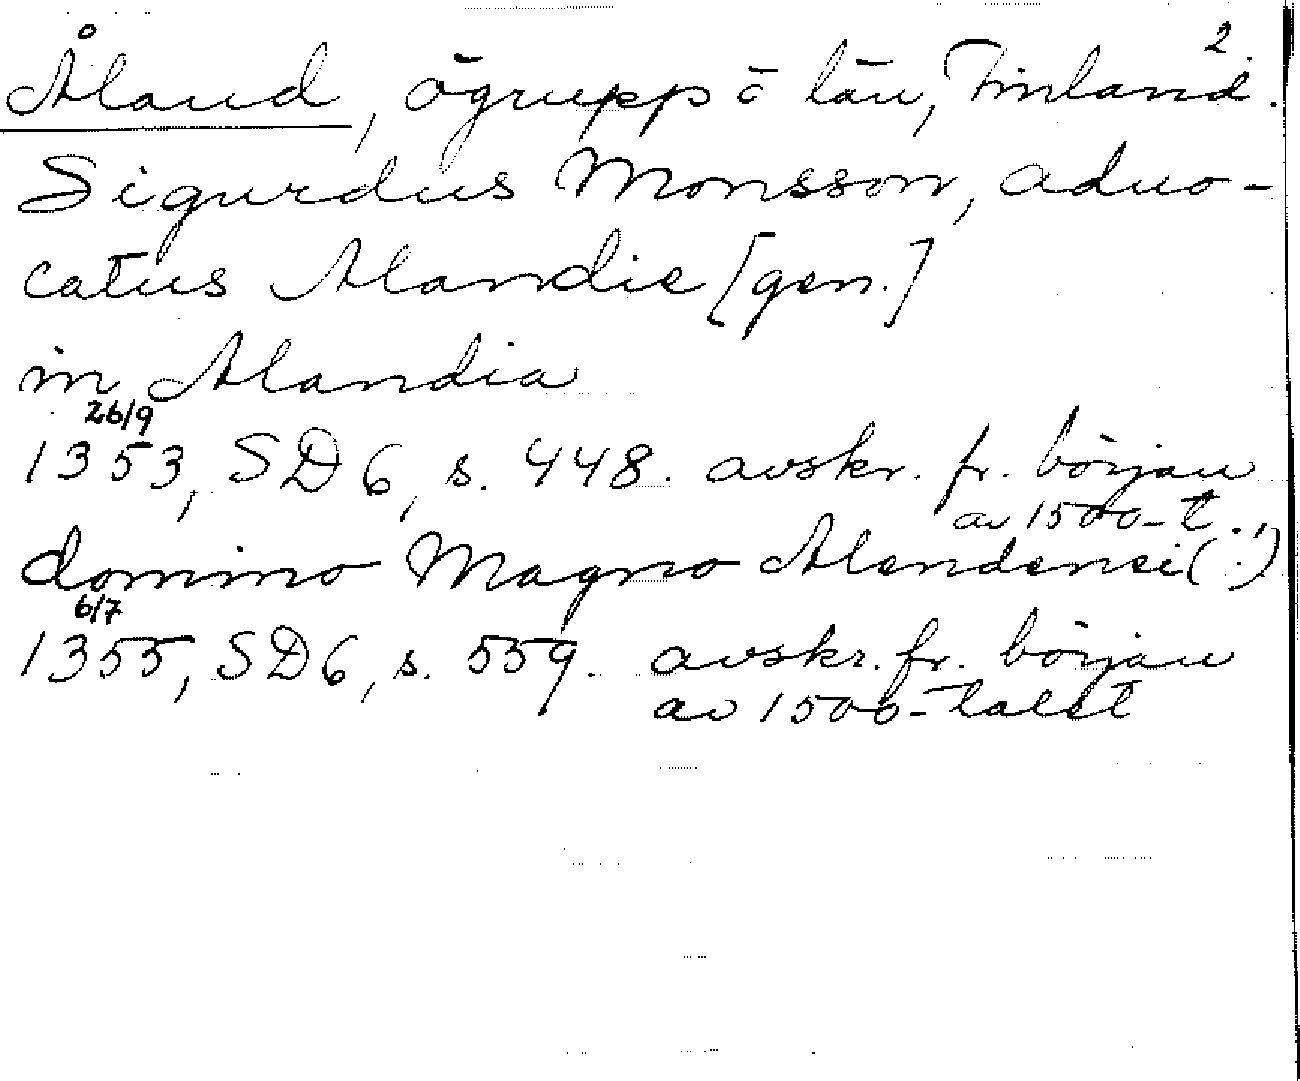 2
Åland, ögrupp o län, Finland.
Sigurdus Monsson, aduo-
catus Alandie [gen.]
in Alandia
26/9
1353, SD 6, s. 448. avskr. fr. början
av 1500-t.
domino Magno Alendensi (!)
6/7
1355, SD 6, s. 559. avskr. fr. början
av 1500-talet